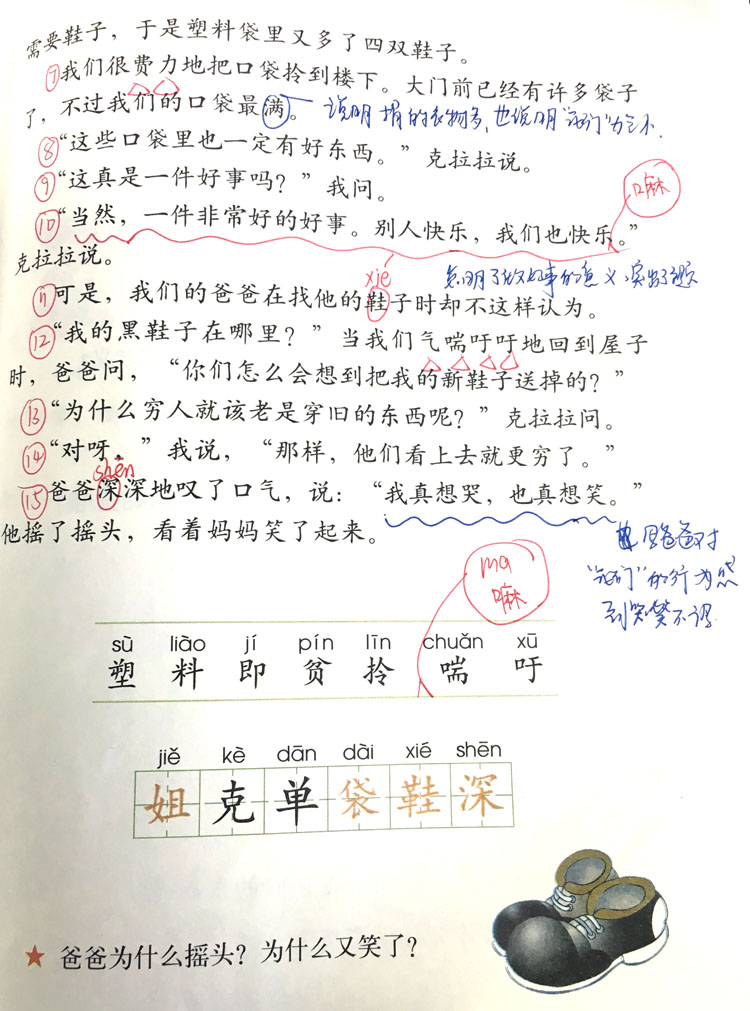 需要鞋子，于是塑料袋里又多了四双鞋子。
⑦我们很费力地把口袋拎到楼下。大门前已经有许多袋子
了，不过我们的口袋最满。 说明捐的衣物多，也说明“我们”
⑧“这些口袋里也一定有好东西。”克拉拉说。
⑨“这真是一件好事吗？”我问。
嘛
⑩“当然，一件非常好的好事。别人快乐，我们也快乐。”
克拉拉说。
xié
⑪可是，我们的爸爸在找他的鞋子时却不这样认为。
⑫“我的黑鞋子在哪里？”当我们气喘吁吁地回到屋子
时，爸爸问，“你们怎么会想到把我的新鞋子送掉的？”
⑬“为什么穷人就该老是穿旧的东西呢？”克拉拉问。
⑭“对呀。”我说，“那样，他们看上去就更穷了。”
shēn
⑮爸爸深深地叹了口气，说：“我真想哭，也真想笑。”
他摇了摇头，看着妈妈笑了起来。
爸爸对
“我们”的行为感
到哭笑不得
ma
嘛
sù liào jí pín līn chuǎn xū
塑 料 即 贫 拎 喘 吁
jiě kè dān dài xié shēn
姐 克 单 袋 鞋 深
★ 爸爸为什么摇头？为什么又笑了？